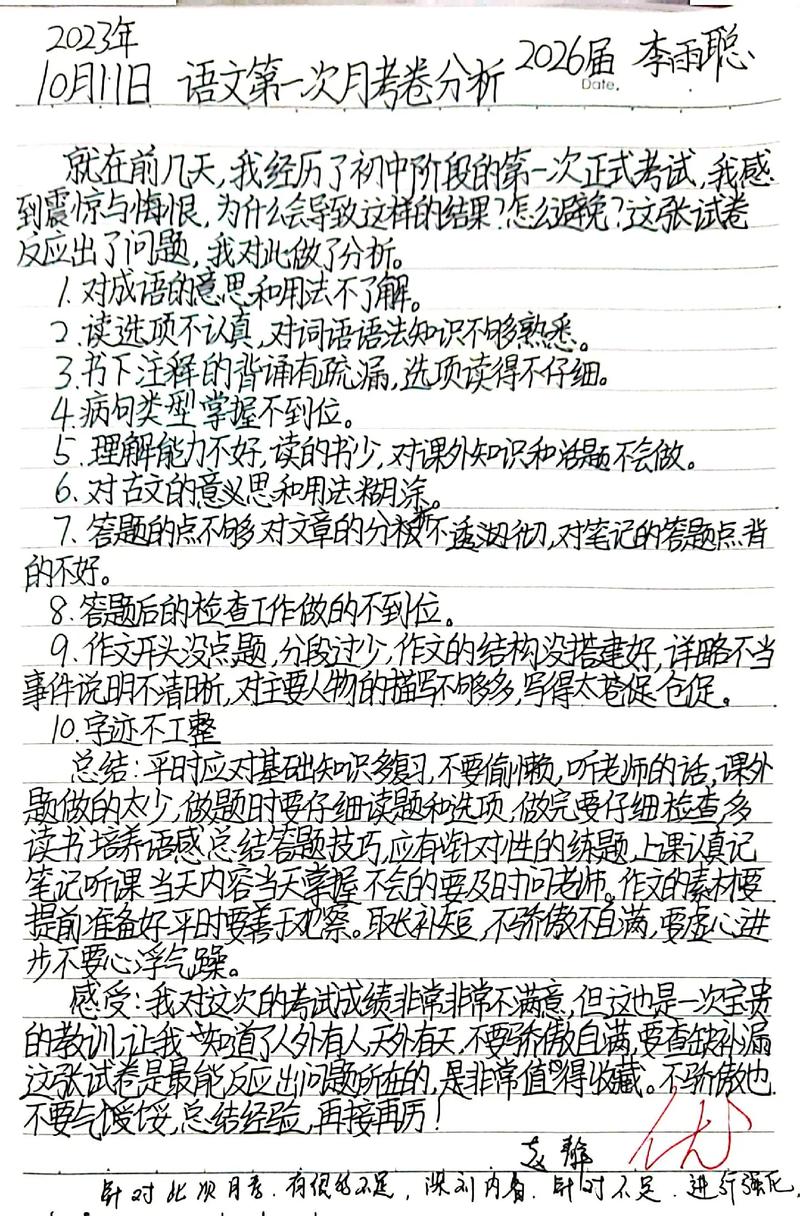 2023年
10月11日 语文第一次月考卷分析 2026届 李雨聪
Date.
就在前几天,我经历了初中阶段的第一次正式考试,我感
到震惊与悔恨,为什么会导致这样的结果?怎么避免?这张试卷
反应出了问题,我对此做了分析。
1.对成语的意思和用法不了解。
2.读选项不认真,对词语语法知识不够熟悉。
3.书下注释的背诵有疏漏,选项读得不仔细。
4.病句类型掌握不到位。
5.理解能力不好,读的书少,对课外知识和话题不会做。
6.对古文的意义思和用法糊涂。
7.答题的点不够对文章的分析不透彻,对笔记的答题点背
的不好。
8.答题后的检查工作做的不到位。
9.作文开头没点题,分段过少,作文的结构没搭建好,详略不当
事件说明不清晰,对主要人物的描写不够多,写得太仓促。
10.字迹不工整
总结:平时应对基础知识多复习,不要偷懒,听老师的话,课外
题做的太少,做题时要仔细读题和选项,做完要仔细检查,多
读书培养语感总结答题技巧,应有针对性的练题,上课认真记
笔记听课当天内容当天掌握不会的要及时问老师。作文的素材要
提前准备好平时要善于观察。取长补短,不骄傲不自满,要虚心进
步不要心浮气躁。
感受:我对这次的考试成绩非常非常不满意,但这也是一次宝贵
的教训,让我知道了人外有人,天外有天,不要骄傲自满,要查缺补漏
这张试卷是最能反应出问题所在的,是非常值得收藏。不骄傲也
不要气馁,总结经验,再接再厉!
优
针对此次月考,有很多不足,深刻内省,针对不足,进行强化,